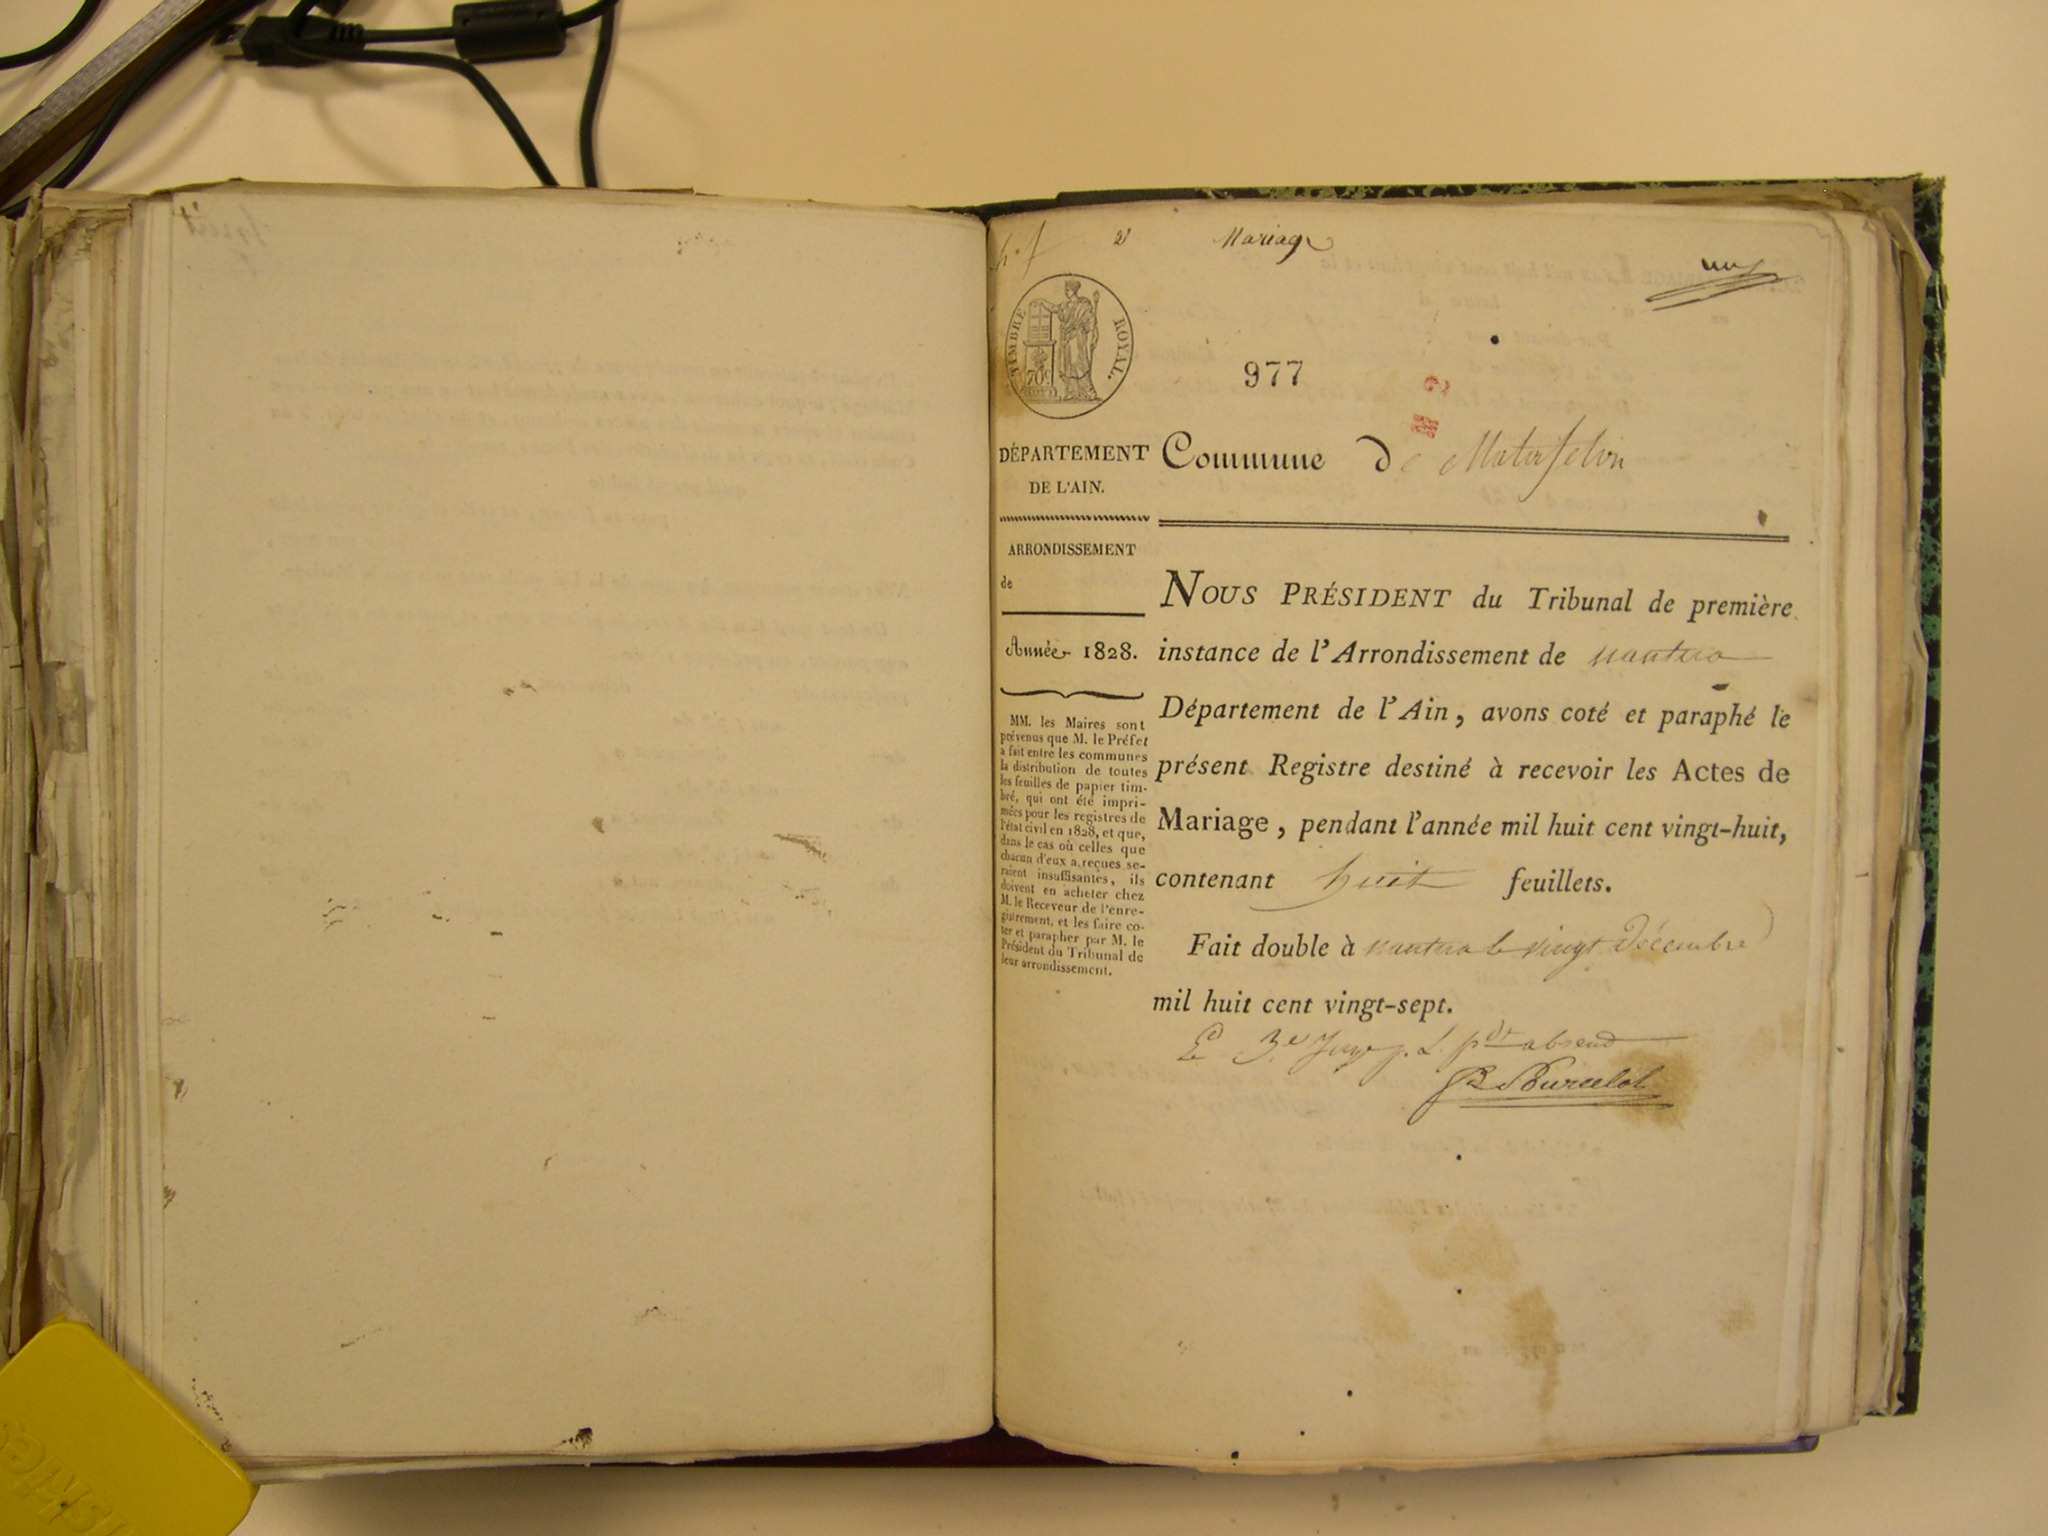 2 Mariage
un
TIMBRE ROYAL
70c
977
DÉPARTEMENT
DE L'AIN.
Commune De Matafelon
ARRONDISSEMENT
de
Année 1828.
MM. les Maires sont
prévenus que M. le Préfet
a fait entre les communes
la distribution de toutes
les feuilles de papier tim-
bré, qui ont été impri-
mées pour les registres de
l'état civil en 1828, et que,
dans le cas où celles que
chacun d'eux a reçues se-
raient insuffisantes, ils
doivent en acheter chez
M. le Receveur de l'enre-
gistrement, et les faire co-
ter et parapher par M. le
Président du Tribunal de
leur arrondissement.
NOUS PRÉSIDENT du Tribunal de première
instance de l'Arrondissement de nantua
Département de l'Ain, avons coté et paraphé le
présent Registre destiné à recevoir les Actes de
Mariage, pendant l'année mil huit cent vingt-huit,
contenant huit feuillets.
Fait double à nantua le vingt Décembre
mil huit cent vingt-sept.
Le 3e Juge p. L. pdt absend